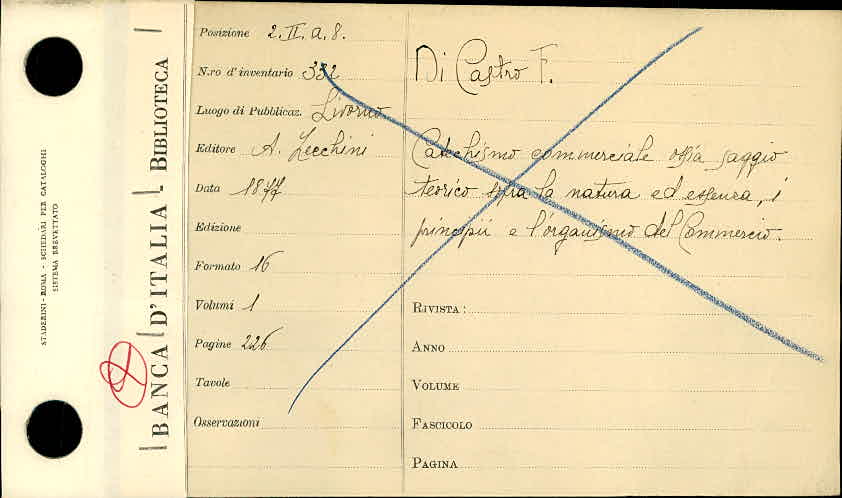 STADERINI - ROMA - SCHEDARI PER CATALOGHI
SISTEMA BREVETTATO
BANCA D'ITALIA - BIBLIOTECA
Posizione 2. II. a. 8.
N.ro d'inventario 332
Luogo di Pubblicaz. Livorno
Editore A. Zecchini
Data 1877
Edizione
Formato 16
Volumi 1
Pagine 226
Tavole
Osservazioni
Di Castro F.
Catechismo commerciale ossia saggio
teorico sopra la natura ed essenza, i
principii e l'organismo del Commercio.
RIVISTA :
ANNO
VOLUME
FASCICOLO
PAGINA